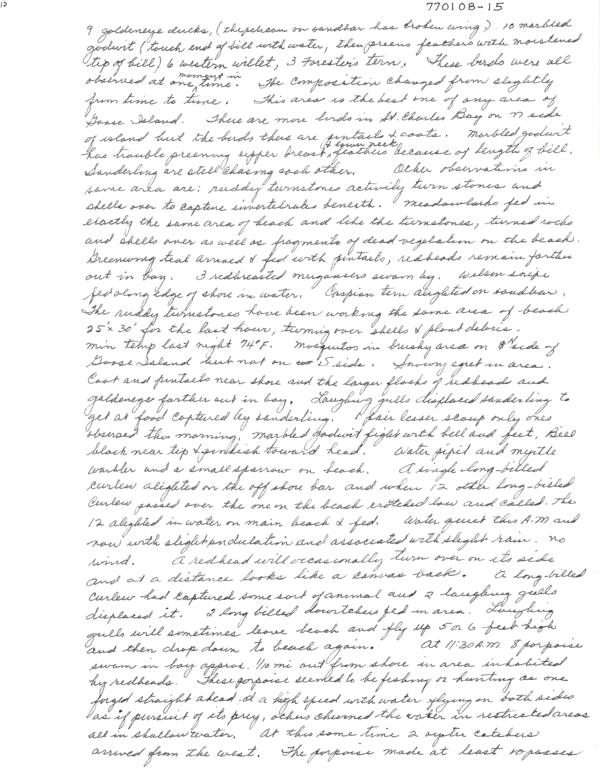 770108-15
9 goldeneye ducks, (the pelican on sandbar has broken wing), 10 marbled
godwit (touch end of bill with water, then preens feathers with moistened
tip of bill) 6 western willet, 3 Forester's tern, These birds were all
observed at one moment in time. The composition changed from slightly
from time to time. This area is the best one of any area of
Goose Island. There are more birds in St. Charles Bay on N side
of island but the birds there are pintails & coots. Marbled godwit
has trouble preening upper breast & lower neck feathers because of length of bill.
Sanderling are still chasing each other. Other observations in
same area are: ruddy turnstones activily turn stones and
shells over to capture invertebrates beneath. Meadowlarks fed in
exactly the same area of beach and like the turnstones, turned rocks
and shells over as well as fragments of dead vegetation on the beach.
Greenwing teal arrived & fed with pintails, redheads remain farther
out in bay. 3 redbreasted mergansers swam by. Wilson snipe
fed along edge of shore in water. Caspian tern alighted on sandbar.
The ruddy turnstones have been working the same area of beach
25'x30' for the last hour, turning over shells & plant debris.
Min temp last night 74°F. Mosquitos in brushy area on N side of
Goose Island but not on S side. Snowy egret in area.
Coot and pintails near shore and the larger flocks of redheads and
goldeneyes farther out in bay. Laughing gulls displaced sanderling to
get at food captured by sanderling. 1 pair lesser scaup only ones
observed this morning, marbled godwit fight with bill and feet, Bill
black near tip & pinkish toward head. Water pipit and myrtle
warbler and a small sparrow on beach. A single long-billed
curlew alighted on the off shore bar and when 12 other long-billed
curlew passed over the one on the beach crotched low and called. The
12 alighted in water on main beach & fed. Water quiet this A.M and
now with slight undulation and associated with slight rain. no
wind. A redhead will occasionally turn over on its side
and at a distance looks like a canvas back. A long-billed
curlew had captured some sort of animal and 2 laughing gulls
displaced it. 2 long billed dowitchers fed in area. Laughing
gulls will sometimes leave beach and fly up 5 or 6 feet high
and then drop down to beach again. At 11:30 A.M. 8 porpoise
swam in bay approx. 1/10 mi out from shore in area inhabited
by redheads. These porpoise seemed to be fishing or hunting as one
forged straight ahead at a high speed with water flying on both sides
as if pursuit of its prey, others churned the water in restricted areas
all in shallow water. At this same time 2 oyster catchers
arrived from the west. The porpoise made at least 10 passes